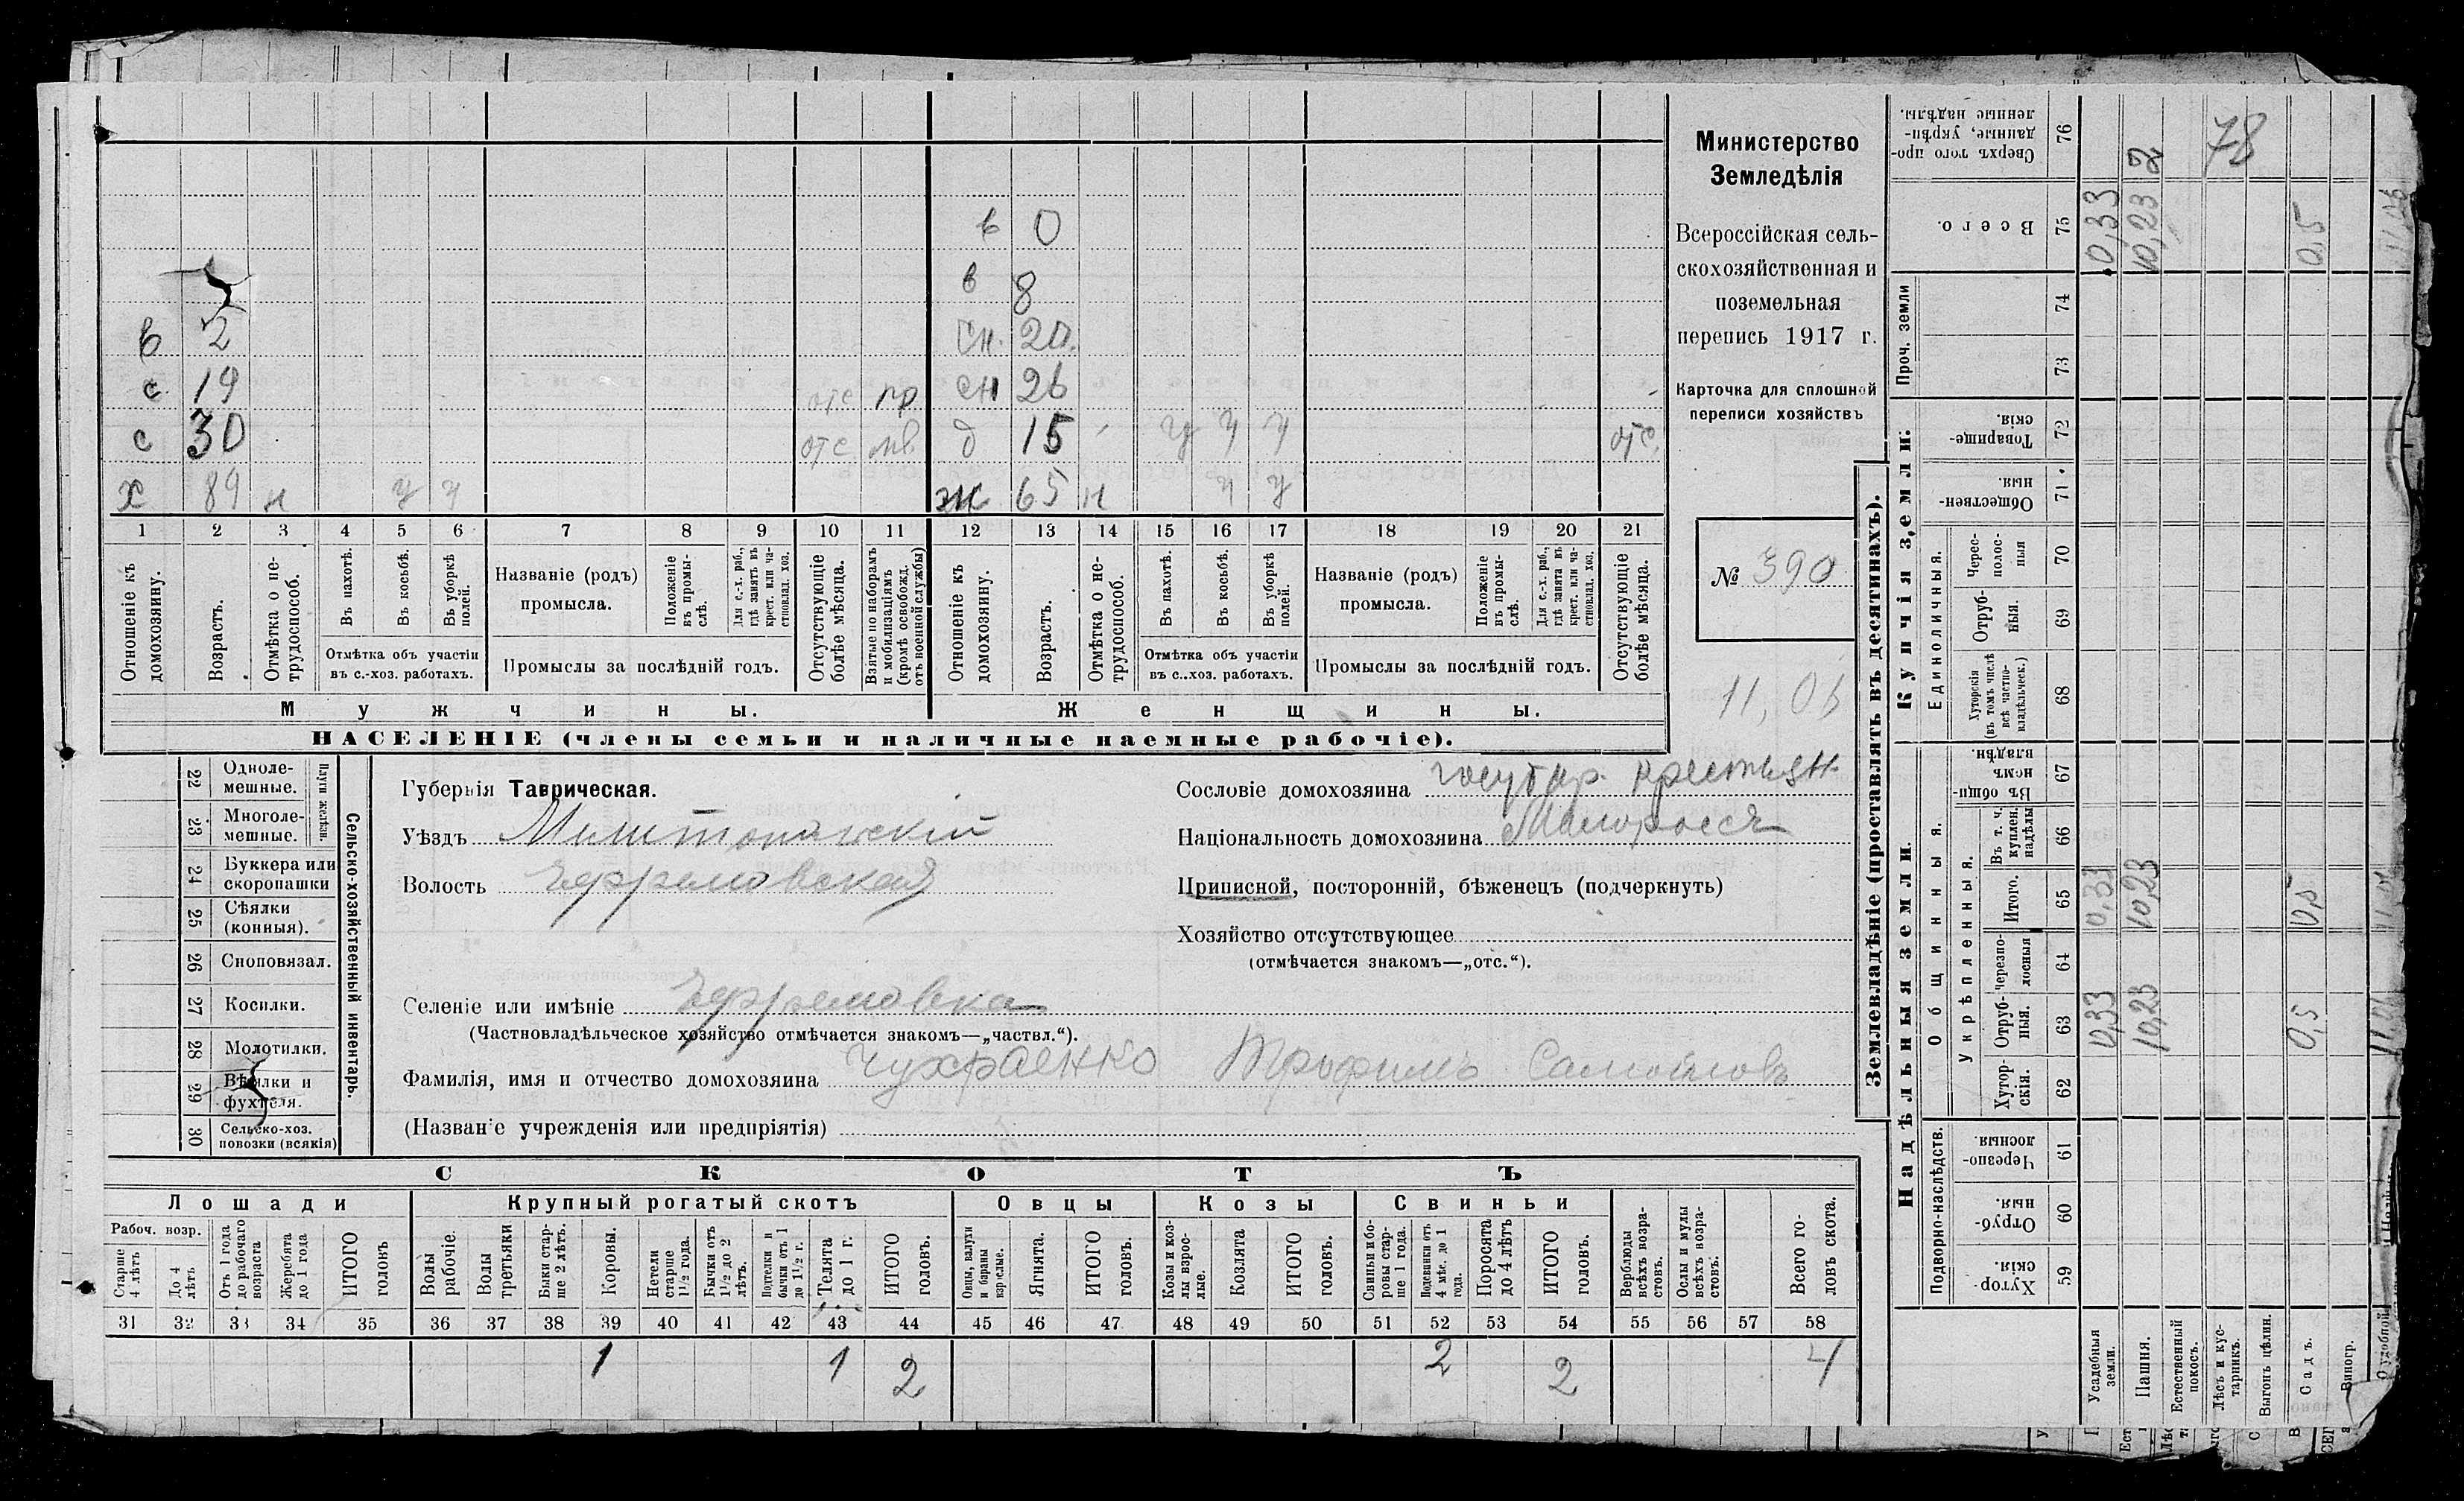 в 0
в 8
в 2 сн. 20.
с 19 отс пр сн 26
с 30 отс мв. д 15 у у у отс.
х 89 н у у ж 65 н у у
1 2 3 4 5 6 7 8 9 10 11 12 13 14 15 16 17 18 19 20 21
Отношеніе къ домохозяину.
Возрастъ.
Отмѣтка о не-трудоспособ.
Въ пахотѣ.
Въ косьбѣ.
Въ уборкѣ полей.
Отмѣтка объ участіи
въ с.-хоз. работахъ.
Названіе (родъ)
промысла.
Положеніе въ промы-слѣ.
Для с.-х. раб., гдѣ занятъ въ крест. или ча-стновлад. хоз.
Промыслы за послѣдній годъ.
Отсутствующіе болѣе мѣсяца.
Взятые по наборамъ и мобилизаціямъ (кромѣ освобожд. отъ военной службы)
Отношеніе къ домохозяину.
Возрастъ.
Отмѣтка о не-трудоспособ.
Въ пахотѣ.
Въ косьбѣ.
Въ уборкѣ полей.
Отмѣтка объ участіи
въ с.-хоз. работахъ.
Названіе (родъ)
промысла.
Положеніе въ промы-слѣ.
Для с.-х. раб., гдѣ занята въ крест. или ча-стновлад. хоз.
Промыслы за послѣдній годъ.
Отсутствующіе болѣе мѣсяца.
Мужчины.
Женщины.
НАСЕЛЕНІЕ (члены семьи и наличные наемные рабочіе).
Министерство
Земледѣлія
Всероссійская сель-
скохозяйственная и
поземельная
перепись 1917 г.
Карточка для сплошной
переписи хозяйствъ
№ 390
11,06
22 Одноле-
мешные.
23 Многоле-
мешные.
24 Буккера или
скоропашки
25 Сѣялки
(конныя).
26 Сноповязал.
27 Косилки.
28 Молотилки.
29 Вѣялки и
фухтеля.
30 Сельско-хоз.
повозки (всякія)
Плуги желѣзн.
Сельско-хозяйственный инвентарь.
Губернія Таврическая.
Уѣздъ Мелитопольскій
Волость Ефремовская
Селеніе или имѣніе Ефремовка
(Частновладѣльческое хозяйство отмѣчается знакомъ—„частвл.“).
Фамилія, имя и отчество домохозяина Чухраенко Трофимъ Самойловъ
(Названіе учрежденія или предпріятія)
Сословіе домохозяина государ. крестьян.
Національность домохозяина Малороссъ
Приписной, посторонній, бѣженецъ (подчеркнуть)
Хозяйство отсутствующее
(отмѣчается знакомъ—„отс.“).
СКОТЪ
Лошади Крупный рогатый скотъ Овцы Козы Свиньи
Рабоч. возр.
Старше 4 лѣтъ
До 4 лѣтъ
Отъ 1 года до рабочаго возраста
Жеребята до 1 года
ИТОГО головъ
Волы рабочіе.
Волы третьяки
Быки стар-ше 2 лѣтъ.
Коровы.
Нетели старше 1½ года.
Бычки отъ 1½ до 2 лѣтъ.
Подтелки и бычки отъ 1 до 1½ г.
Телята до 1 г.
ИТОГО головъ.
Овцы, валухи и бараны взрслые.
Ягнята.
ИТОГО головъ.
Козы и коз-лы взрос-лые.
Козлята
ИТОГО головъ.
Свиньи и бо-ровы стар-ше 1 года.
Подсвинки отъ 4 мѣс. до 1 года.
Поросята до 4 лѣтъ
ИТОГО головъ.
Верблюды всѣхъ возра-стовъ.
Ослы и мулы всѣхъ возра-стовъ.
Всего го-ловъ скота.
31 32 33 34 35 36 37 38 39 40 41 42 43 44 45 46 47 48 49 50 51 52 53 54 55 56 57 58
1 1 2 2 2 4
Землевладѣніе (проставлять въ десятинахъ).
Надѣльныя земли.
Купчія земли:
Подворно-наслѣдств.
Общинныя.
Укрѣпленныя.
Единоличныя.
Проч. земли
Хутор-скія. 59
Отруб-ныя. 60
Черезпо-лосныя 61
Хутор-скія. 62
Отруб-ныя. 63
Черезпо-лосныя 64
Итого. 65
Въ т. ч. куплен. надѣлы 66
Въ общин-номъ владѣн. 67
Хуторскія (въ томъ числѣ всѣ частно-владѣльческ.) 68
Отруб-ныя. 69
Черес-полос-ныя 70
Обществен-ныя. 71
Товарище-скія. 72
73
74
Всего. 75
Сверхъ того про-данные, укрѣп-ленные надѣлы. 76
Усадебныя земли. 0,33 0,33 0,33
Пашня. 10,23 10,23 10,23 2
Естественный покосъ.
Лѣсъ и кус-тарникъ. 78
Выгонъ цѣлин.
Садъ. 0,5 0,5 0,5
Виногр.